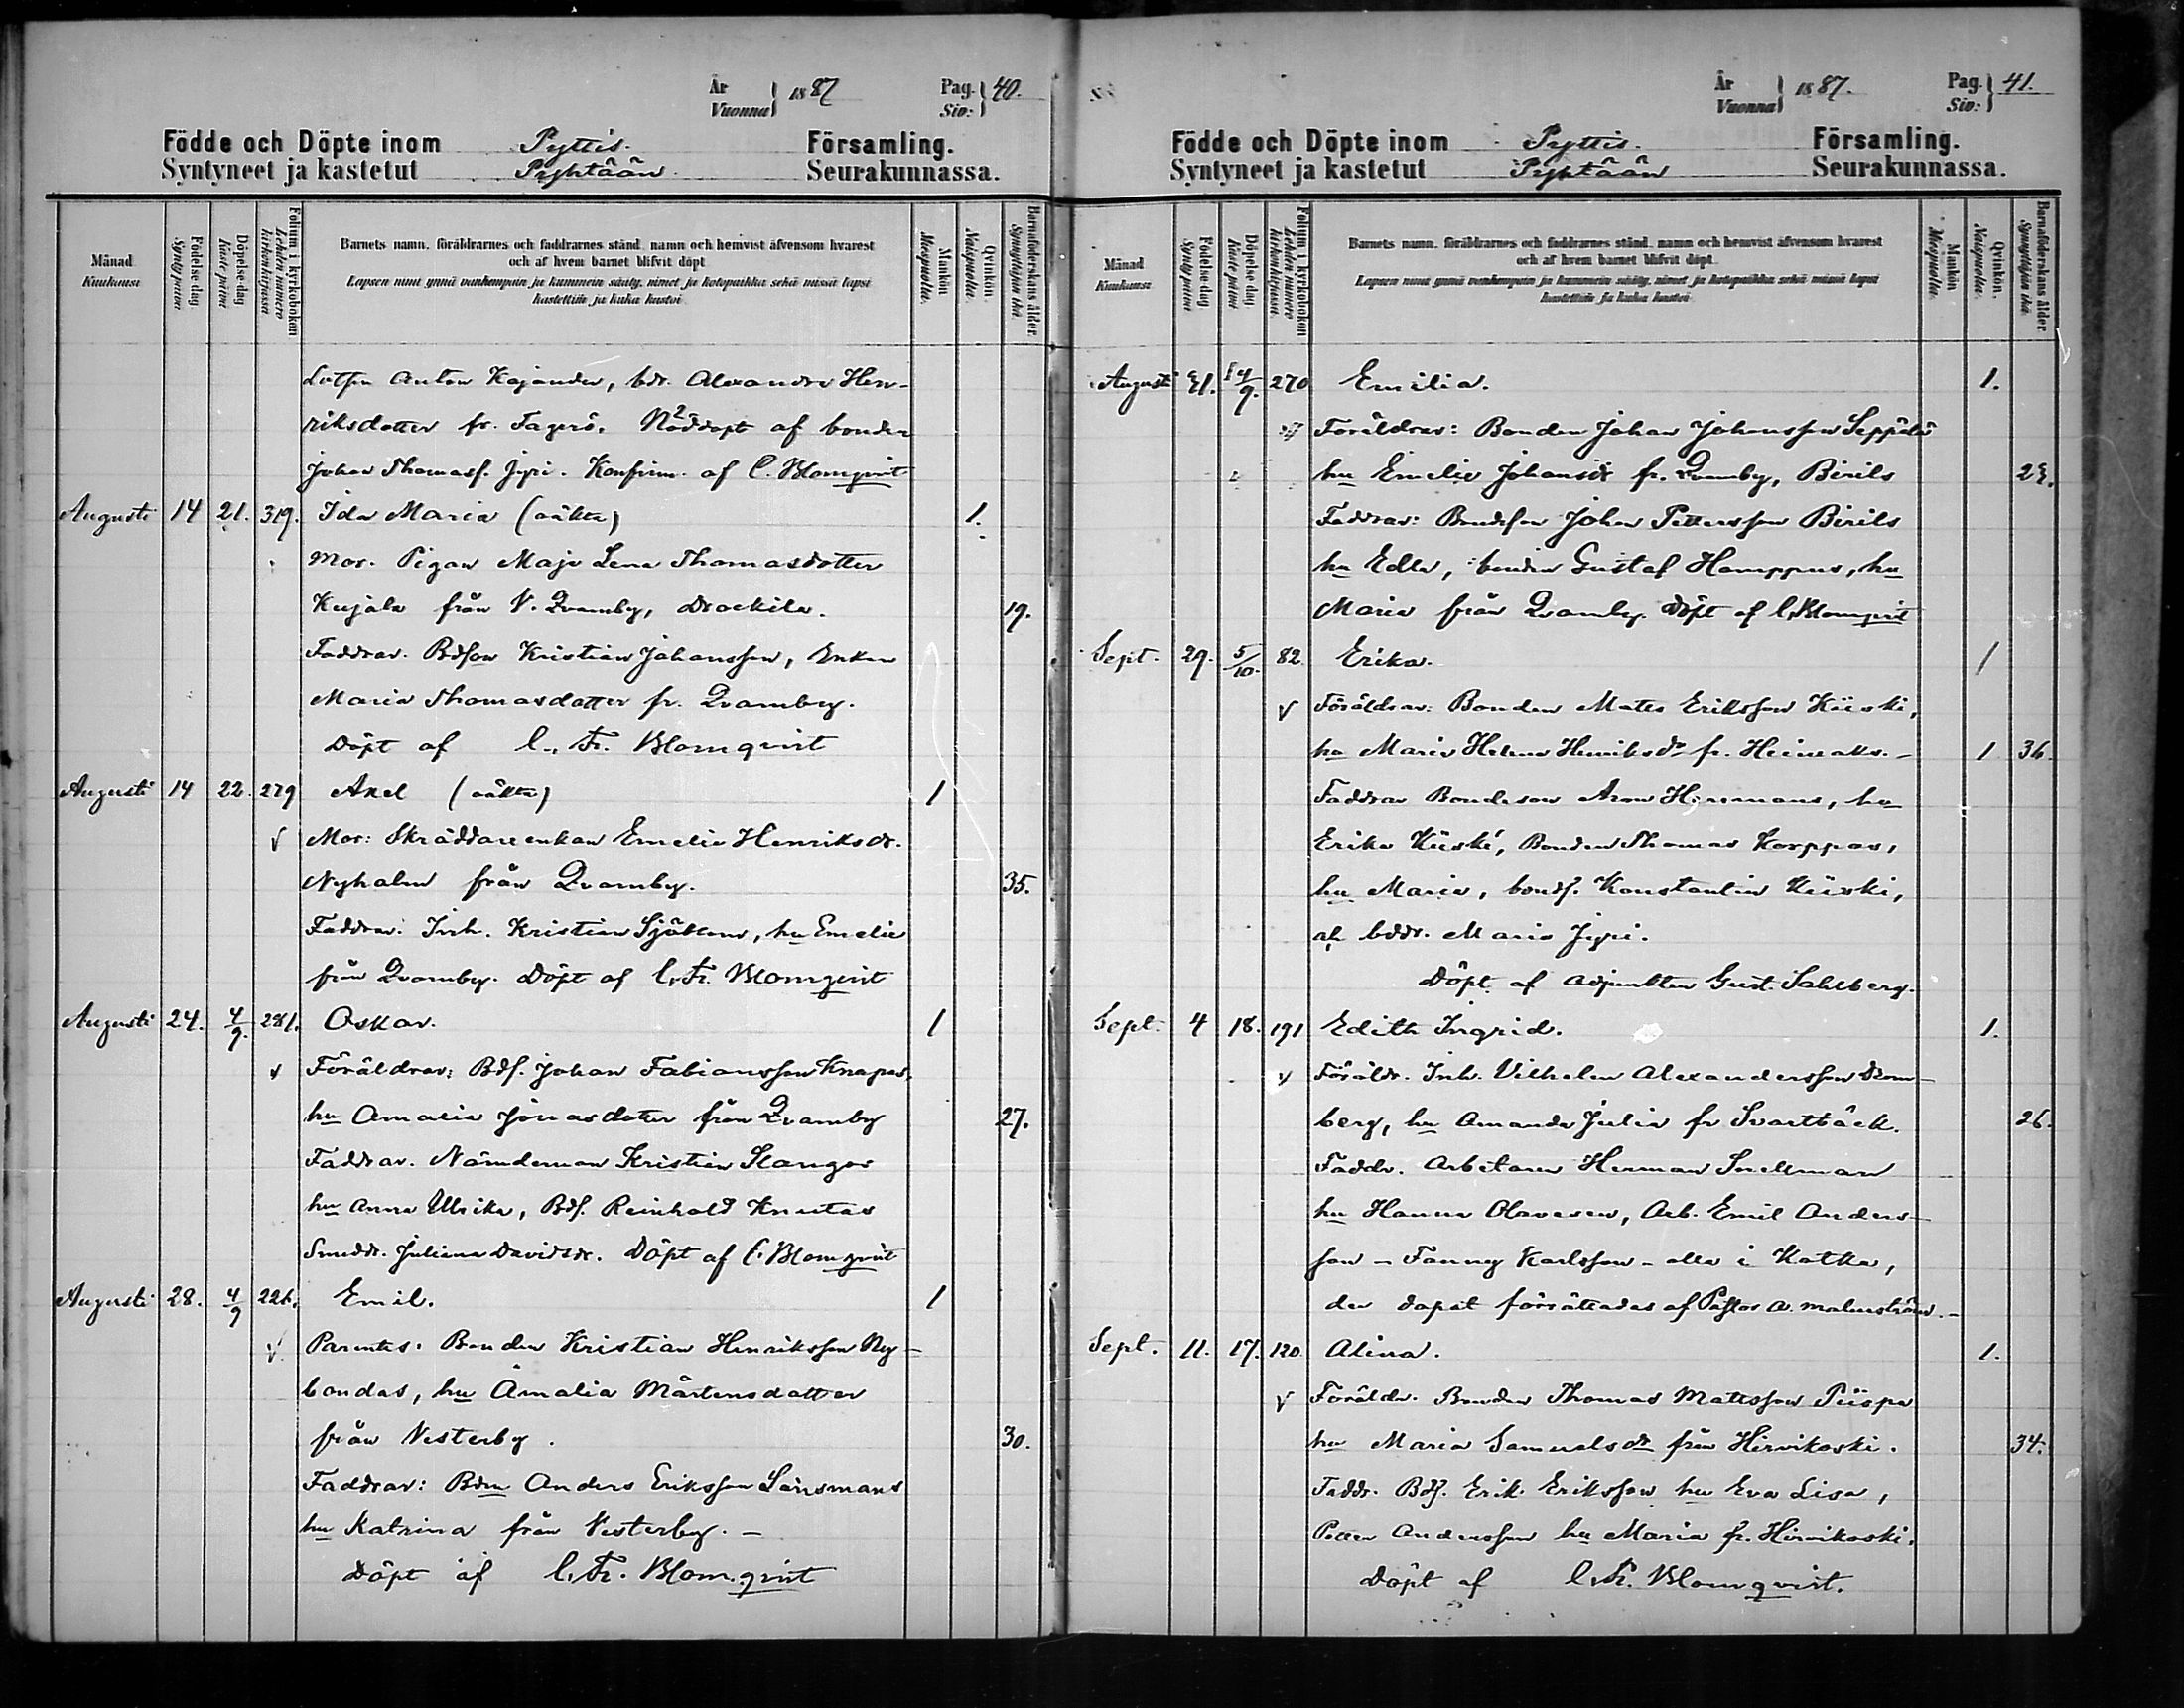 År
Vuonna } 1887
Pag.
Siv: } 40.
Födde och Döpte inom Pyttis. Församling.
Syntyneet ja kastetut Pyhtään Seurakunnassa.
Månad
Kuukausi
Födelse-dag.
Syntypäivä
Döpelse-dag
Kaste päivä
Folium i kyrkoboken
Lehden numero kirkonkirjassa
Barnets namn, föräldrarnes och faddrarnes stånd, namn och hemvist äfvensom hvarest
och af hvem barnet blifvit döpt
Lapsen nimi ynnä vanhempain ja kummein sääty, nimet ja kotopaikka sekä missä lapsi
kastettiin ja kuka kastoi
Mankön
Miespuolia.
Qvinkön.
Naispuolia.
Barnaföderskans ålder.
Synnyttäjän ikä.
Lotsen Anton Kajander, bdr. Alexandra Hen-
riksdotter fr. Fagerö. Nöddöpt af bonden
Johan Thomass. Jyri. Konfirm. af C. Blomqvist
Augusti 14 21. 319. Ida Maria (oäkta) 1.
Mor. Pigan Maja Lena Thomasdotter
Kujala från V. Qvarnby, Drackila. 19.
Faddrar. Bdson Kristian Johansson, Enkan
Maria Thomasdotter fr. Qvarnby.
Döpt af C. Fr. Blomqvist
Augusti 14 22. 279 Axel (oäkta) 1
Mor: Skräddareenkan Emelie Henriksdr.
Nyholm från Qvarnby. 35.
Faddrar: Inh. Kristian Sjöblom, hu Emelie
från Qvarnby. Döpt af C. Fr. Blomqvist
Augusti 24. 4/9. 281. Oskar. 1
Föräldrar: Bds. Johan Fabiansson Knapas,
hu Amalia Jonasdotter från Qvarnby 27.
Faddrar. Nämdeman Kristian Stangar
hu Anna Ulrika, Bds. Reinhold Knutas
Smeddr. Juliana Davidsdr. Döpt af C. Blomqvist
Augusti 28. 4/9 226. Emil. 1
Parentes. Bonden Kristian Henriksson Ny-
bondas, hu Amalia Mårtensdotter
från Vesterby. 30.
Faddrar: Bdn Anders Eriksson Länsmans
hu Katrina från Vesterby. –
Döpt af C. Fr. Blomqvist
År
Vuonna } 1887.
Pag.
Siv: } 41.
Födde och Döpte inom Pyttis. Församling.
Syntyneet ja kastetut Pyhtään Seurakunnassa.
Månad
Kuukausi
Födelse-dag.
Syntypäivä
Döpelse-dag
Kaste päivä
Folium i kyrkoboken
Lehden numero kirkonkirjassa.
Barnets namn, föräldrarnes och faddrarnes stånd, namn och hemvist äfvensom hvarest
och af hvem barnet blifvit döpt.
Lapsen nimi ynnä vanhempain ja kummein sääty, nimet ja kotopaikka sekä missä lapsi
kastettiin ja kuka kastoi
Mankön
Miespuolia.
Qvinkön.
Naispuolia.
Barnaföderskans ålder.
Synnyttäjän ikä.
Augusti 31. 4/9. 270 Emilia. 1.
Föräldrar: Bonden Johan Johansson Seppälä
hu Emelie Johansdr fr. Qvarnby, Birils 23.
Faddrar: Bondson Johan Pettersson Birils
hu Edla, bonden Gustaf Hamppus, hu
Maria från Qvarnby. Döpt af C. Blomqvist
Sept. 29. 5/10. 82. Erika. 1
Föräldrar: Bonden Mats Eriksson Kiiski,
hu Maria Helena Henriksdr fr. Heinlaks. – 1 36.
Faddrar Bondeson Aron Hinmans, hu
Erika Kiiski, Bonden Thomas Korppas,
hu Maria, bonds. Konstantin Kiiski,
o bddr. Maria Jyri.
Döpt af Adjunkten Gust. Sahlberg.
Sept. 4 18. 191 Edith Ingrid. 1.
Föräldr. Inh. Vilhelm Alexandersson Drom-
berg, hu Amanda Julia fr Svartbäck. 26.
Faddr. Arbetaren Herman Snellman
hu Hanna Olavesen, Arb. Emil Anders-
son – Fanny Karlsson – alla i Kotka,
der dopet förrättades af Pastor A. Malmström. –
Sept. 11. 17. 120. Alina. 1.
Föräldr. Bonden Thomas Mattsson Piispa
hu Maria Samuelsdr från Hirvikoski. 34.
Faddr. Bds. Erik Eriksson hu Eva Lisa,
Petter Andersson hu Maria fr. Hirvikoski.
Döpt af C. Fr. Blomqvist.